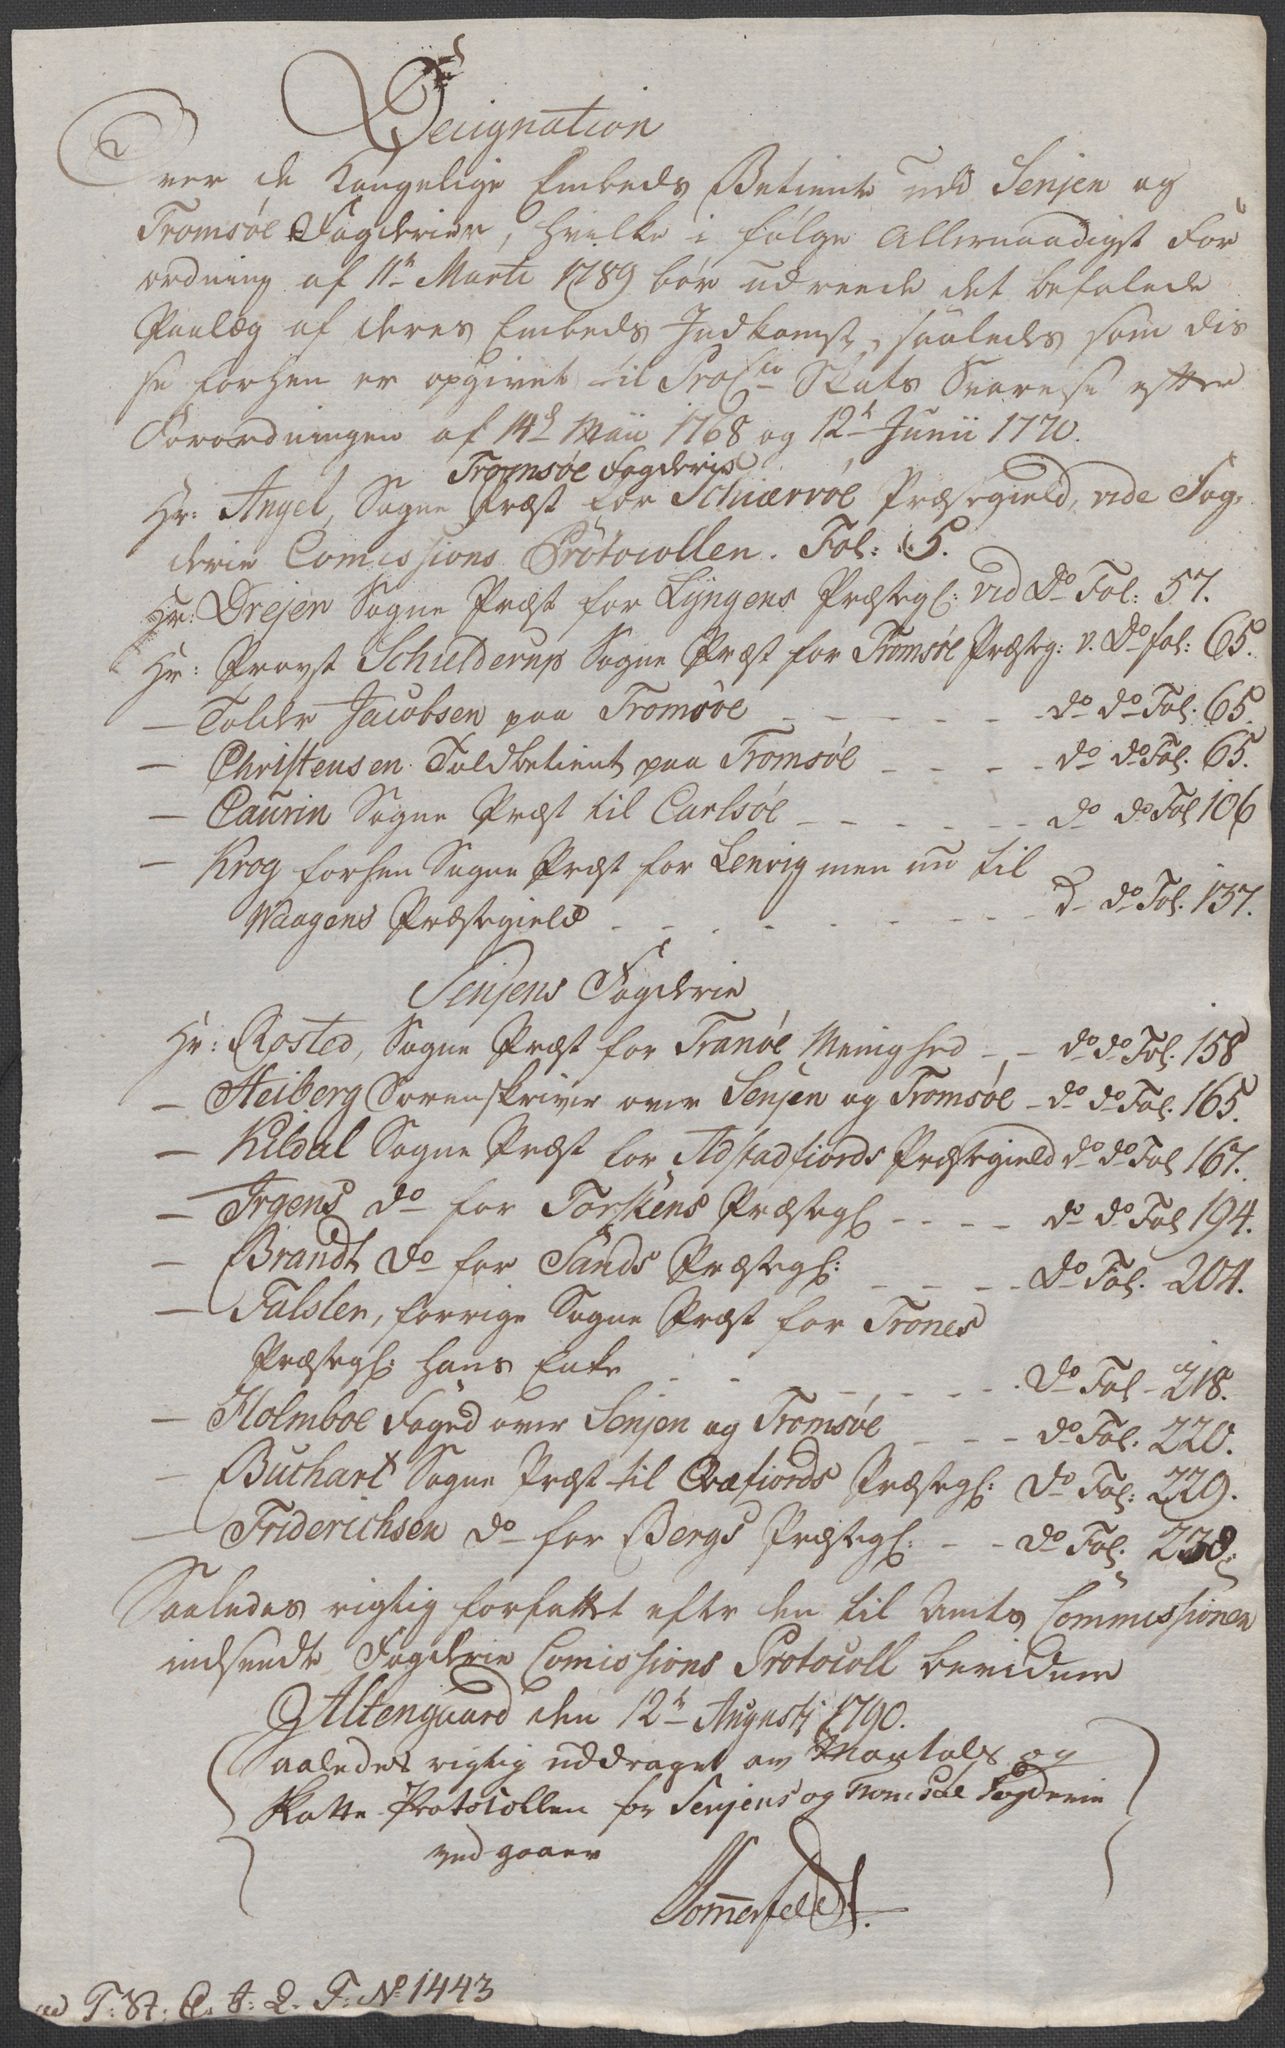 Designation
Over de Kongelige Embeds Betiente udi Senjen og
Tromsøe Fogderier, hvilke i følge Allernaadigst For
ordning af 11te Marti 1789 bør udreede det befalede
Paalæg af deres Embeds Indkomst, saaledes som dis
se forhen er opgivet til ProCto Skats Svarelse efter
Forordningen af 14de Maii 1768 og 12te Junii 1770.
Tromsøe Fogderie
Hr: Angel, Sogne Præst for Schiærvøe Præstegield, vide Fog-
derie Comissions Protocollen. Fol: 5.
Hr: Drejer Sogne Præst for Lÿngens Præstegl: vid Do Fol: 57.
Hr: Provst Schielderup Sogne Præst for Tromsøe Præsteg: v. Do fol: 65.
— Tolder Jacobsen paa Tromsøe - - - - - do do Fol. 65.
— Christensen Toldbetient paa Tromsøe - - - - do do Fol. 65.
— Caurin Sogne Præst til Carlsøe - - - - - - do do Fol 106
— Krog forhen Sogne Præst for Lenvig men nu til
Waagens Præstegield - - - - - - - - D do Fol. 137.
Senjens Fogderie
Hr: Rosted, Sogne Præst for Tranøe Menighed - - do do Fol. 158
— Heiberg Sorenskriver over Senjen og Tromsøe - do do Fol. 165.
— Kildal Sogne Præst for Astadfiords Præstegield do do Fol 167.
— Irgens do for Torskens Præstegl - - - - do do Fol 194.
— Brandt do for Sands Præstegl: - - - - do Fol. 204.
— Falster, forrige Sogne Præst for Trones
Præstegl: hans Enke - - - - - - - . do Fol - 218.
— Holmboe Foged over Senjen og Tromsøe - - - do Fol. 220.
— Buchart Sogne Præst til Qvæfiords Præstegl: do Fol: 229.
— Friderichsen do for Bergs Præstegl: - - do Fol: 230.
Saaledes rigtig forfattet efter den til Amts Commissionen
indsendte Fogderie Comissions Protocoll bevidner
Altengaard den 12te Augusti 1790.
Saaledes rigtig uddraget av Mantals og
Skatte Protocollen for Senjens og Tromsøe Fogderie
vedgaaer
Sommerfeldt.
ad T: St: C. I: 2. F: No 1443